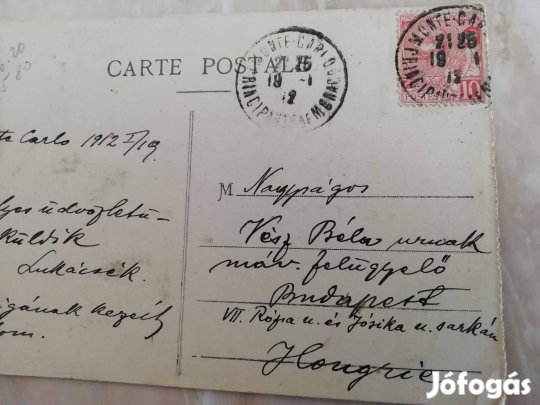 CARTE POSTALE
MONTE-CARLO
21 25
19 -1
12
PRINCIPAUTÉ DE MONACO
MONTE-CARLO
21 25
19 -1
12
PRINCIPAUTÉ DE MONACO
10
Carlo 1912 I/19
üdvözletü-
küldik
Lukácsék.
kezeit
M Nagyságos
Vész Béla urnak
máv. felügyelő
Budapest
VII. Rózsa u. és Jósika u. sarkán
Hongrie
Jófogás